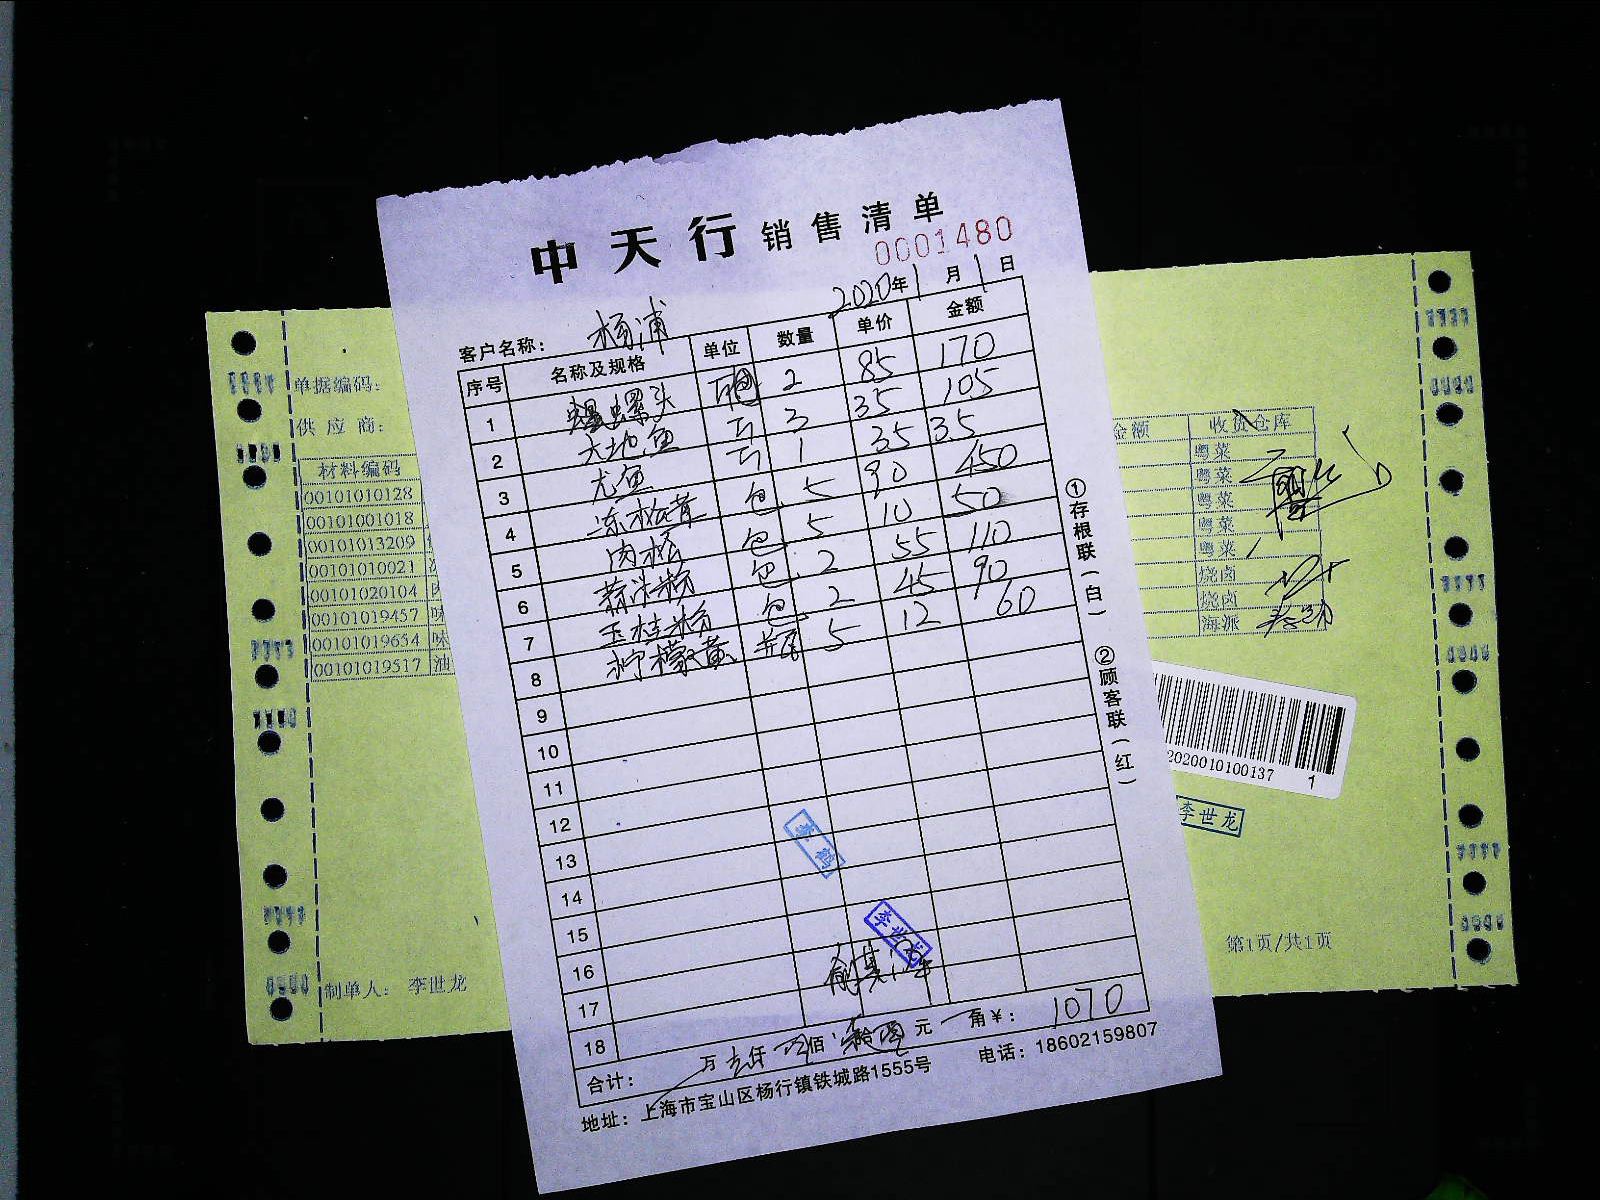 中天行销售清单
0001480
2020年1月1日
客户名称：杨浦
序号 名称及规格 单位 数量 单价 金额
1 螺头 2 85 170
2 大地鱼 3 35 105
3 尤鱼 1 35 35
4 冻松茸 包 5 90 450
5 肉松 包 5 10 50
6 蒜汁粉 包 2 55 110
7 玉桂粉 包 2 45 90
8 柠檬黄 瓶 5 12 60
9
10
11
12
13
14
15
16
17
18
李鹤
李世龙
合计： 万 仟 佰 元 角￥：1070
地址：上海市宝山区杨行镇铁城路1555号 电话：18602159807
①存根联（白）
②顾客联（红）
单据编码：
供应商：
材料编码
00101010128
00101001018
00101013209
00101010021
00101020104
00101019457 味
00101019654 味
00101019517 油
制单人：李世龙
金额 收货仓库
粤菜
粤菜
粤菜
粤菜
粤菜
烧卤
烧卤
海派
2020010100137
1
李世龙
第1页/共1页